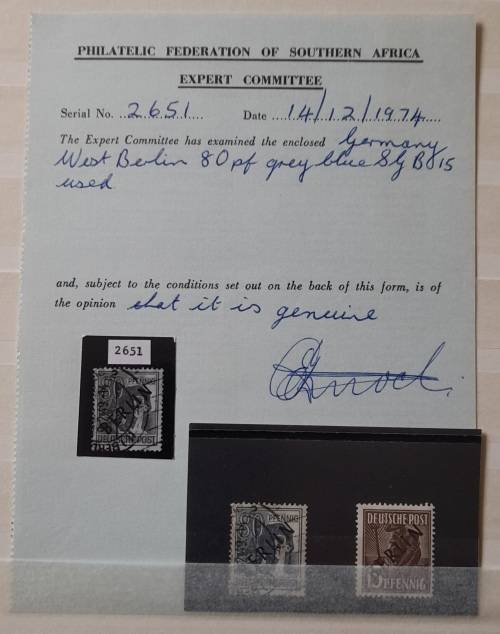 PHILATELIC FEDERATION OF SOUTHERN AFRICA
EXPERT COMMITTEE
Serial No. 2651 Date 14/12/1974
The Expert Committee has examined the enclosed Germany
West Berlin 80pf grey blue SG B015
used
and, subject to the conditions set out on the back of this form, is of
the opinion that it is genuine
2651
DEUTSCHE POST
15 PFENNIG
PFENNIG